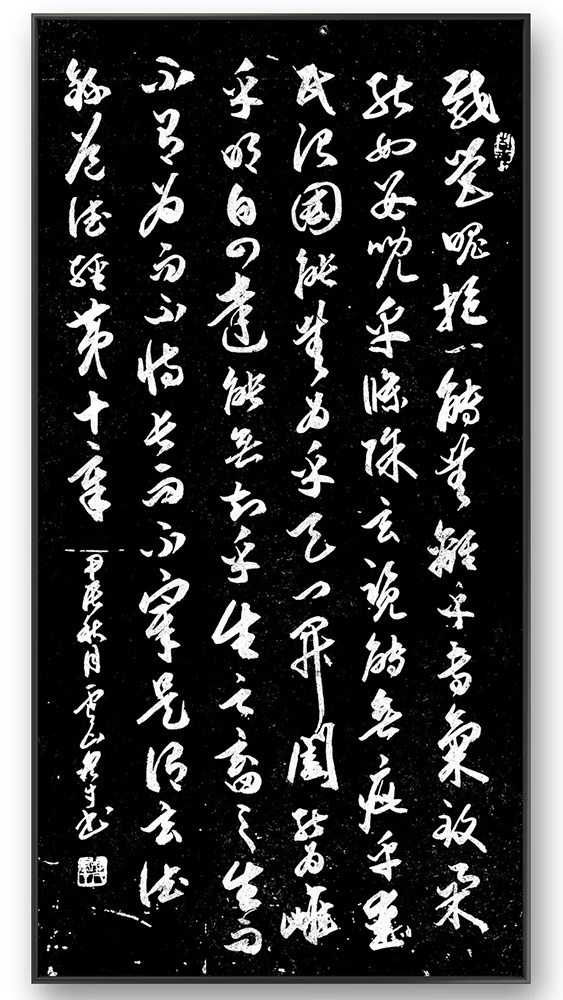 載營魄抱一能無離乎專氣致柔
能如嬰兒乎滌除玄覽能無疵乎愛
民治國能無為乎天門開闔能為雌
乎明白四達能無知乎生之畜之生而
不有為而不恃長而不宰是謂玄德
錄道德經第十章
甲辰秋月雲山書